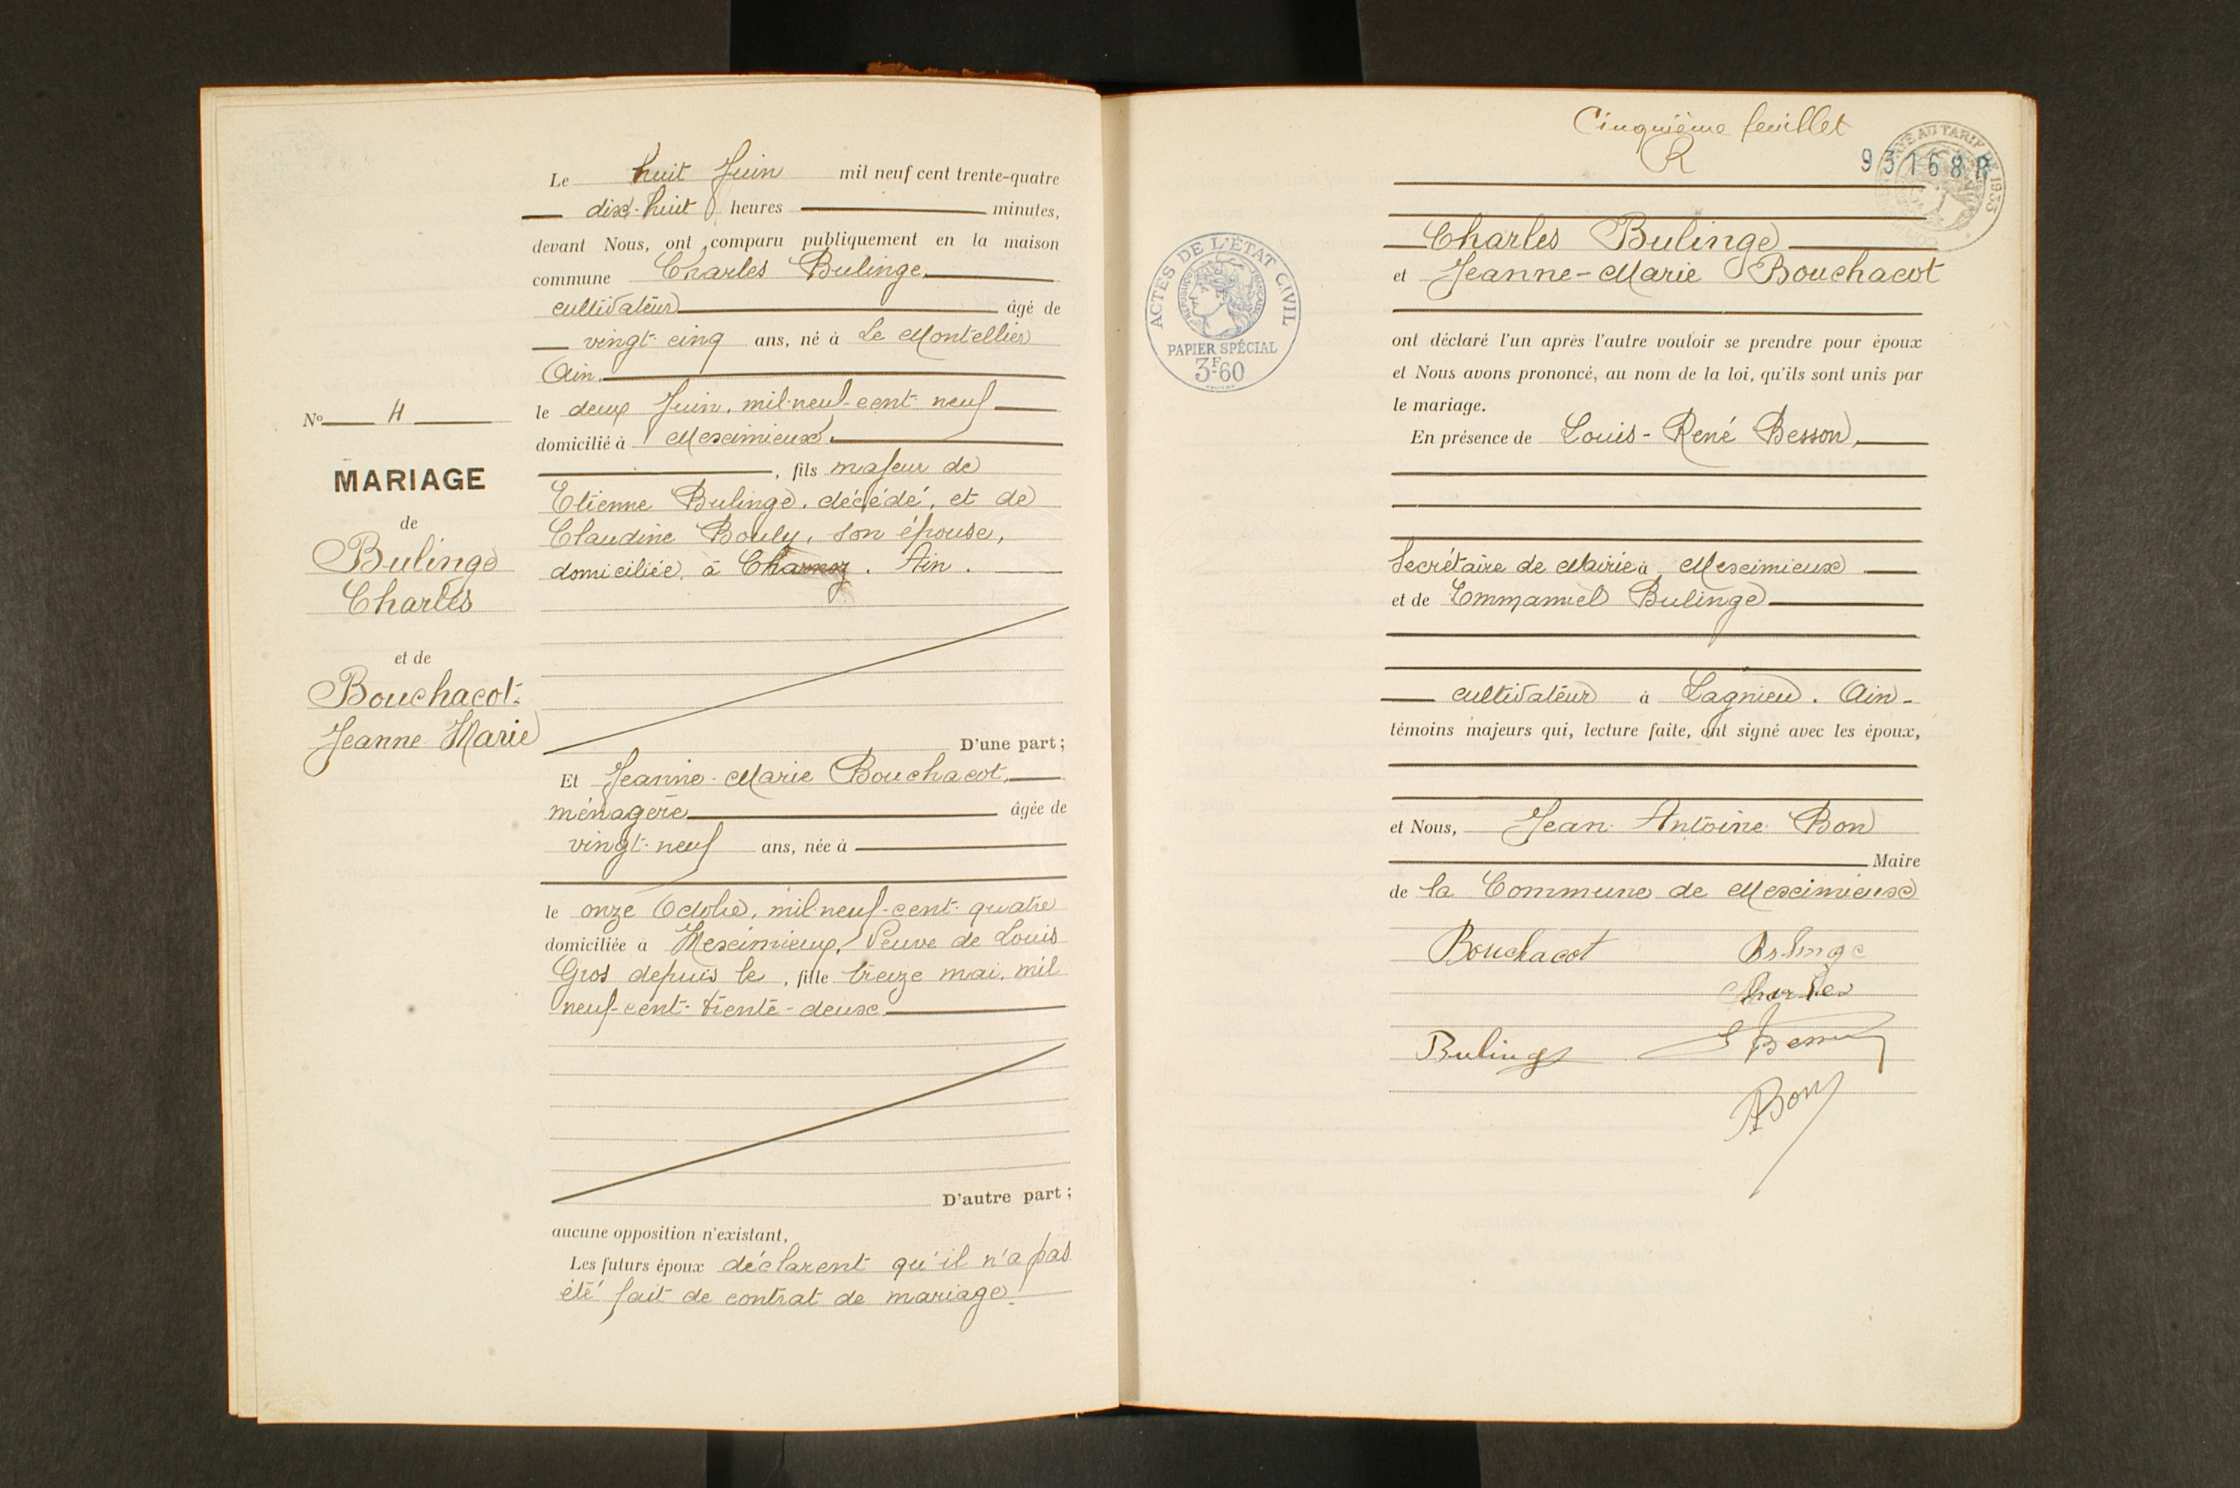 Le huit Juin mil neuf cent trente-quatre
dix-huit heures minutes,
devant Nous, ont comparu publiquement en la maison
commune Charles Bulinge
cultivateur âgé de
vingt-cinq ans, né à Le Montellier
Ain.
le deux Juin, mil-neuf-cent-neuf
domicilié à Meximieux.
, fils majeur de
Etienne Bulinge, décédé, et de
Claudine Bouly, son épouse,
domiciliée, à Charnoz. Ain.
D'une part;
Et Jeanne-Marie Bouchacot,
ménagère âgée de
vingt-neuf ans, née à
le onze Octobre, mil-neuf-cent-quatre
domiciliée à Meximieux, Veuve de Louis
Gros depuis le, fille treize mai, mil
neuf-cent-trente-deux
D'autre part;
aucune opposition n'existant,
Les futurs époux déclarent qu'il n'a pas
été fait de contrat de mariage.
No 4
MARIAGE
de
Bulinge
Charles
et de
Bouchacot
Jeanne Marie
Cinquième feuillet
R
Charles Bulinge
et Jeanne-Marie Bouchacot
ont déclaré l'un après l'autre vouloir se prendre pour époux
et Nous avons prononcé, au nom de la loi, qu'ils sont unis par
le mariage.
En présence de Louis-René Besson,
Secrétaire de Mairie à Meximieux
et de Emmanuel Bulinge
cultivateur à Lagnieu. Ain-
témoins majeurs qui, lecture faite, ont signé avec les époux,
et Nous, Jean Antoine Bon
Maire
de la Commune de Meximieux
Bouchacot Bulinge
Charles
Bulinge Besson
Bon
ACTES DE L'ÉTAT CIVIL
PAPIER SPÉCIAL
3F60